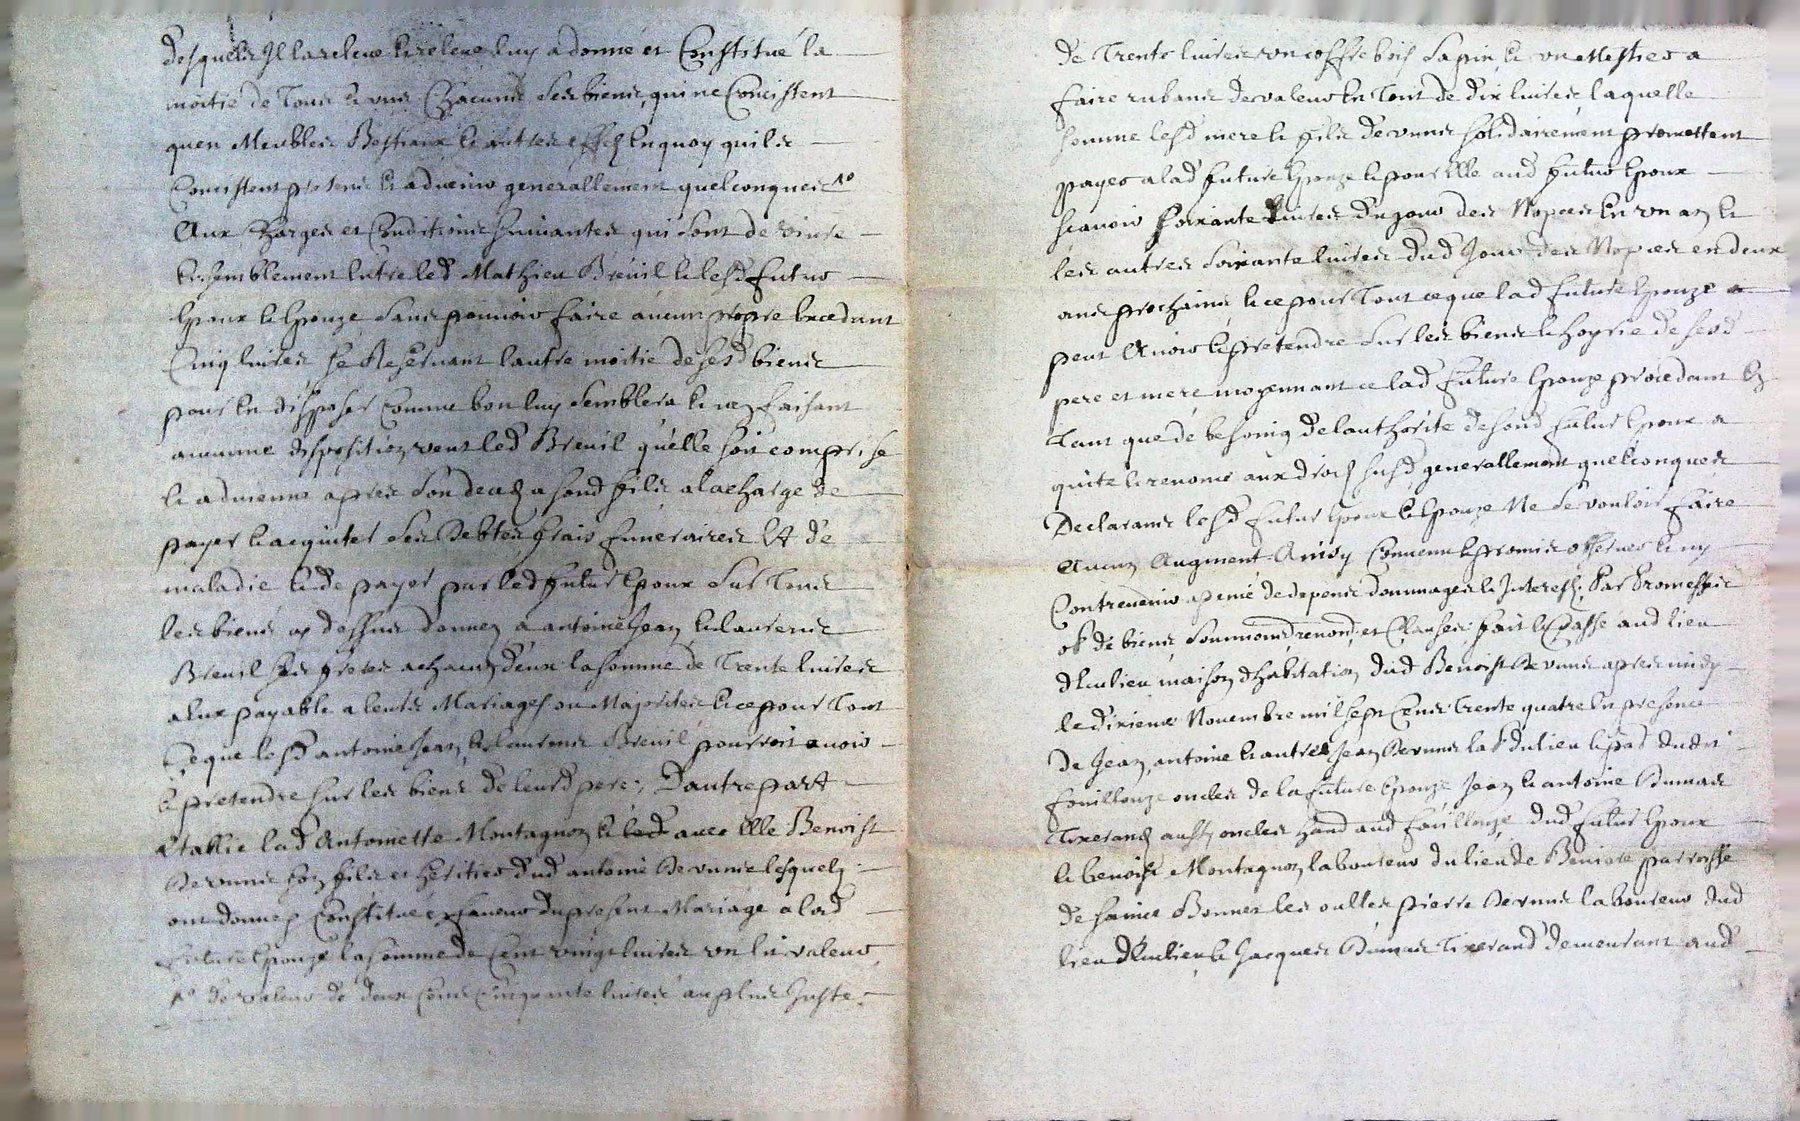 desquels Il la releve et releve luy a donné et Constitué la
moitie de Tous et uns Chacuns ses biens, qui ne Concistent
quen Meubles Bestiaux et autres effets En quoy quils
Concistent presens et advenir generallement quelconques
Aux Charges et Conditions suivantes qui sont de vivre
Ensemblement Entre led Mathieu Breuil et lesd futur
Epoux et Epouze sans pouvoir faire aucun propre Excedant
Cinq livres se Reservant lautre moitie de sesd biens
pour En disposer Comme bon luy semblera et nen faisant
aucunne disposition veut led Breuil quelle soit comprise
et advienne apres son decez a sond fils a la charge de
payer et acquiter ses Debtes frais funeraires Et de
maladie et de payer par led futur Epoux sur Tous
les biens cy dessus donnez a antoine Jean et Laurens
Breuil ses freres a chacun deux la somme de Trente livres
a Eux payable a leurs Mariages ou Majorites et ce pour Tout
Ce que lesd antoine Jean et Laurens Breuil pourroit avoir
et pretendre sur les biens de leurd pere; Dautre part
Etablie lad Antoinette Montagnon et avec Elle Benoist
Servins son fils et heritier dud antoine Servins lesquels
ont donné Constitué En faveur du present Mariage a lad
future Epouze la somme de Cent vingt livres un lit valeur
de valeur de deux Cens Cinquante livres au plus Juste
de Trente livres un coffre bois sapin et un Mestier a
faire rubans de valeur En Tout de dix livres, laquelle
somme lesd mere et fils Servins solidairement promettent
payer a lad future Epouze et pour Elle aud futur Epoux
scavoir soixante livres du jour des Nopces En un an et
les autres soixante livres dud Jour des Nopces en deux
ans prochains, et ce pour Tout ce que lad future Epouze
peut avoir et pretendre sur les biens et hoyrie de sesd
pere et mere moyennant ce lad future Epouze procedant En
Tant que de besoing de lauthorite de sond futur Epoux a
quité et renoncé aux droits susd generallement quelconques
Declarans lesd futur Epoux et Epouze Ne se vouloir faire
Aucun Augment Ainsy Convenu et promis observer et ny
Contrevenir a peine de depens dommages et Interests, Par Promesses
ob de biens soumions renond et Clauses fait et Passé aud lieu
maison dhabitation dud Benoist Servins apres midy
le dixieme Novembre mil sept Cens trente quatre En presence
De Jean, antoine et autre Jean Servins du lieu et par
fouillouze oncles de la future Epouze Jean et antoine Dumas
Tixerands aussy oncles aud fouillouze dud futur Epoux
et benoist Montagnon laboureur du lieu de parroisse
de saint Bonnet les oulles pierre Servins laboureur dud
lieu et Jacques Dumas Tixerand demeurant aud